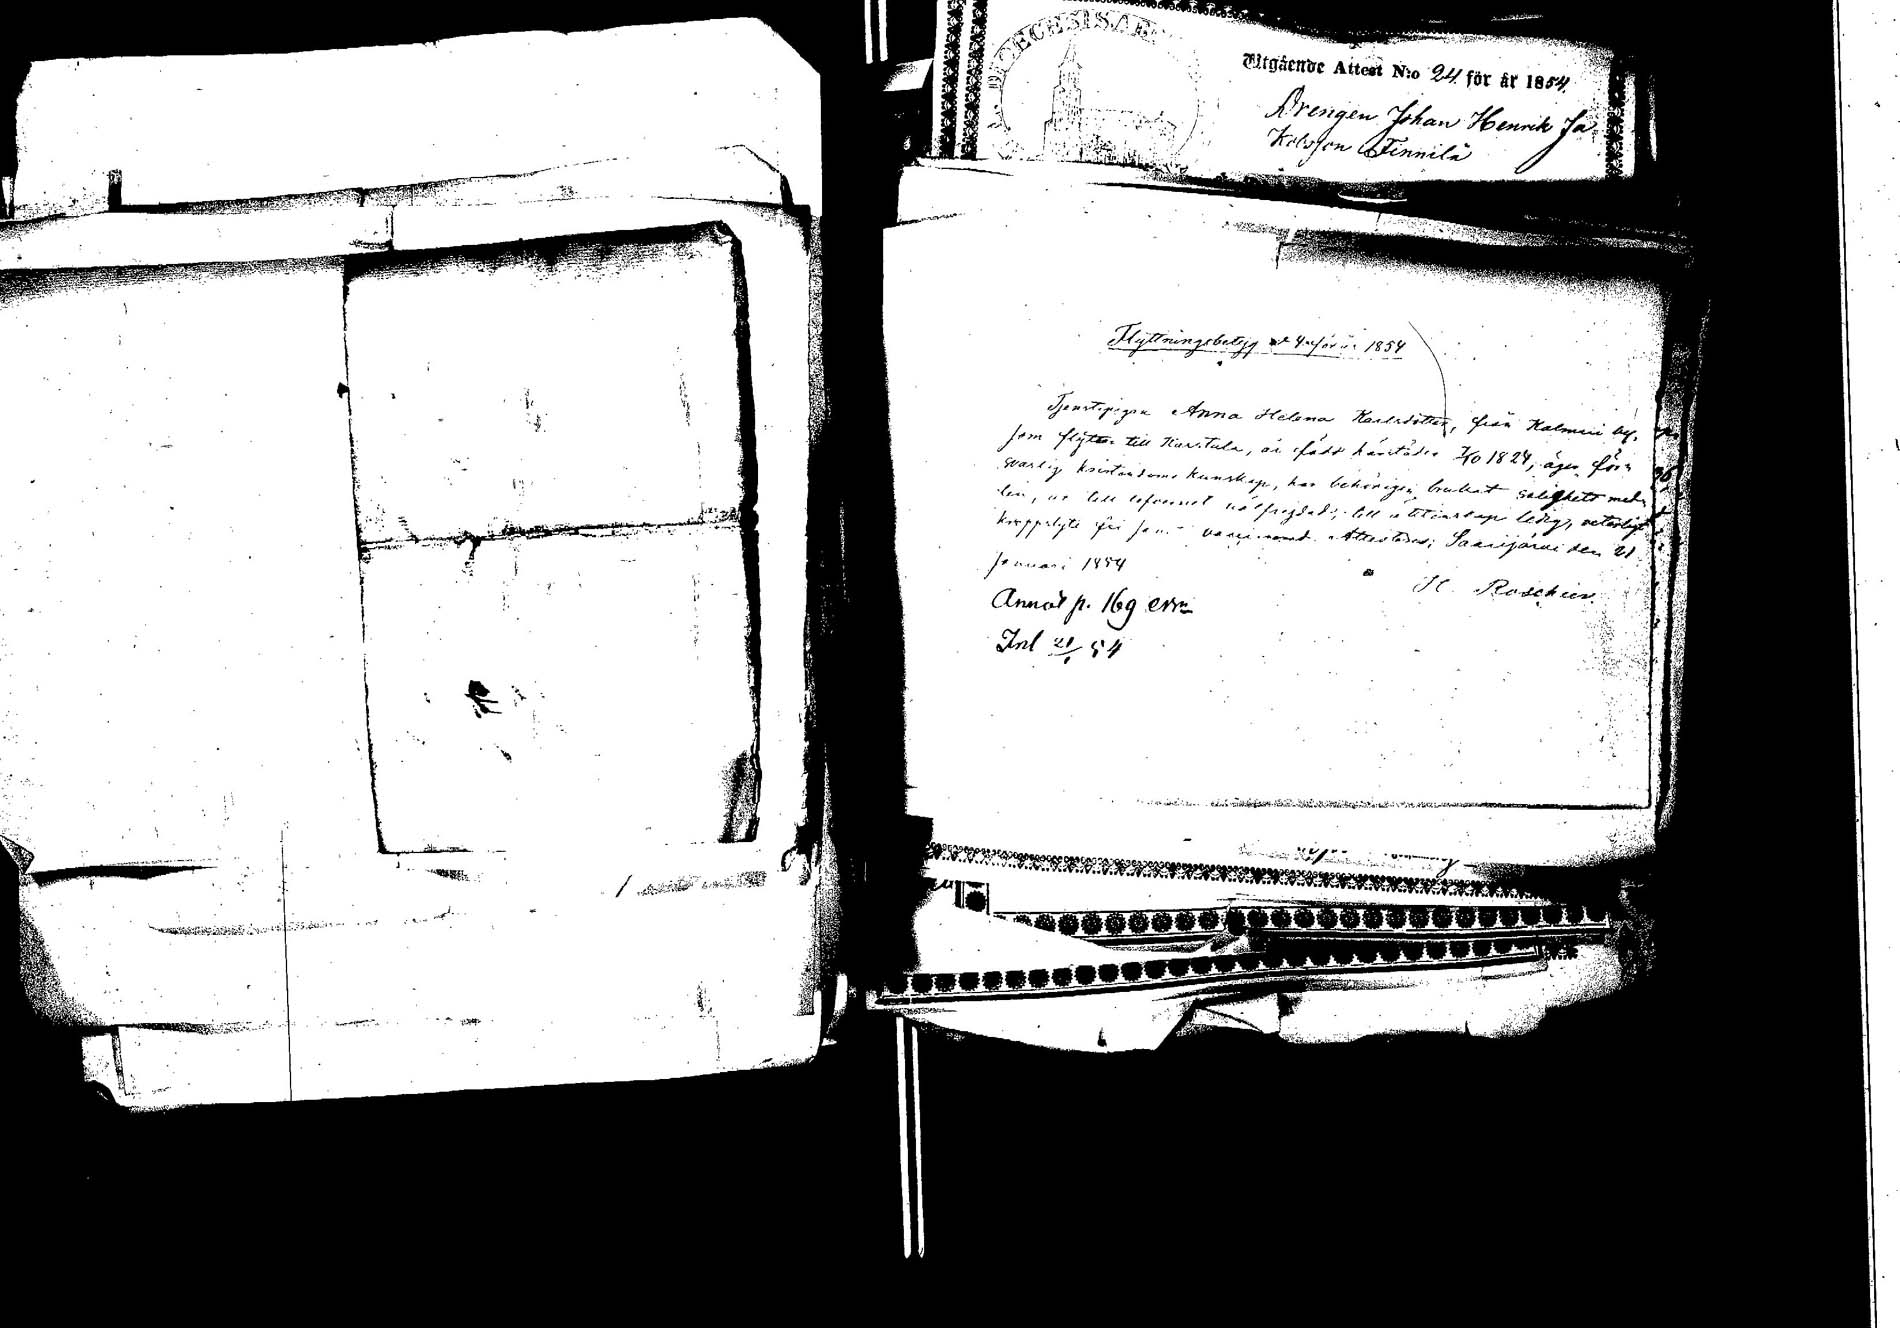 DIOECESIS AB
Utgående Attest N:o 24. för år 1854.
Drengen Johan Henrik Ja
kobsson Finnilä
Flyttningsbetyg 1854
Tjenstepigan Anna Helena Karlsdotter, från Kalmari by,
som flyttar till Karstula, är född härstädes 1824, äger för-
svarlig kristendoms kunskap, har behörigen brukat salighets med-
len, är till lefvernet välfrejdad, till äktenskap ledig, veterligt
kopplyte fri samt vaccinerad. Attesteras; Saarijärvi den 21
Januari 1854
H. Roschier.
Annot p. 169
Inl 21/1 54